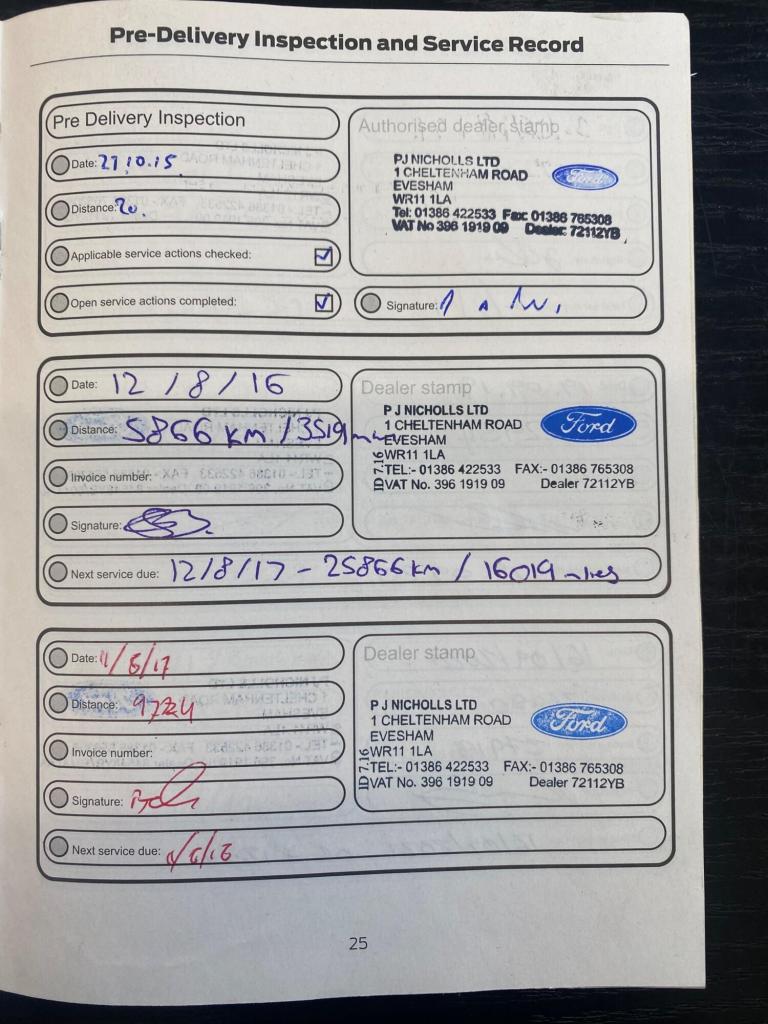 Pre-Delivery Inspection and Service Record
Pre Delivery Inspection
Date: 27.10.15.
Distance: 20.
Applicable service actions checked:
Open service actions completed:
Authorised dealer stamp
PJ NICHOLLS LTD
1 CHELTENHAM ROAD
EVESHAM
WR11 1LA
Tel: 01386 422533 Fax: 01386 765308
VAT No 396 1919 09 Dealer: 72112YB
Ford
Signature:
Date: 12/8/16
Distance: 5866 km / 3519
Invoice number:
Signature:
Dealer stamp
P J NICHOLLS LTD
1 CHELTENHAM ROAD
EVESHAM
WR11 1LA
TEL:- 01386 422533 FAX:- 01386 765308
VAT No. 396 1919 09 Dealer 72112YB
ID 7.16
Ford
Next service due: 12/8/17 - 25866 km / 16019 miles
Date: 11/6/17
Distance:
Invoice number:
Signature:
Dealer stamp
P J NICHOLLS LTD
1 CHELTENHAM ROAD
EVESHAM
WR11 1LA
TEL:- 01386 422533 FAX:- 01386 765308
VAT No. 396 1919 09 Dealer 72112YB
ID 7.16
Ford
Next service due:
25